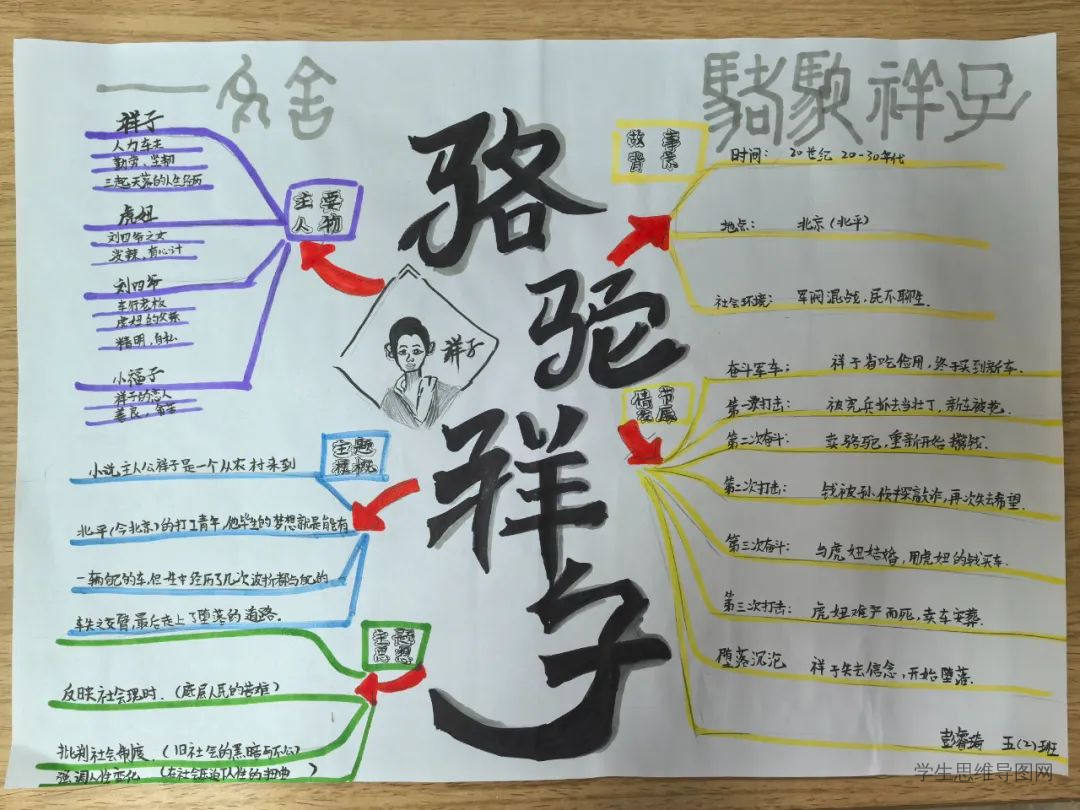 一 舍
駱駝祥子
骆驼祥子
祥子
主要人物
祥子
人力车夫
勤劳、坚韧
三起三落的人生经历
虎妞
刘四爷之女
泼辣、有心计
刘四爷
车行老板
虎妞的父亲
精明、自私
小福子
祥子的恋人
善良、
故事背景
时间: 20世纪 20-30年代
地点: 北京(北平)
社会环境: 军阀混战,民不聊生.
情节发展
奋斗买车: 祥子省吃俭用,终于买到新车.
第一次打击: 被兵抓去当壮丁,新车被抢.
第二次奋斗: 卖骆驼,重新开始攒钱.
第二次打击: 钱被孙侦探敲诈,再次失去希望.
第三次奋斗: 与虎妞结婚,用虎妞的钱买车.
第三次打击: 虎妞难产而死,卖车安葬.
堕落沉沦 祥子失去信念,开始堕落.
主题
小说主人公祥子是一个从农村来到
北平(今北京)的打工青年,他毕生的梦想就是能有
一辆自己的车,但 中经历了几次波折都与他的
车失之交臂,最后走上了堕落的道路.
主题思想
反映社会现时.(底层人民的苦难)
批判社会制度.(旧社会的黑暗与不公)
强调人性变化 (在社会 人性的扭曲)
彭睿琦 五(2)班
学生思维导图网